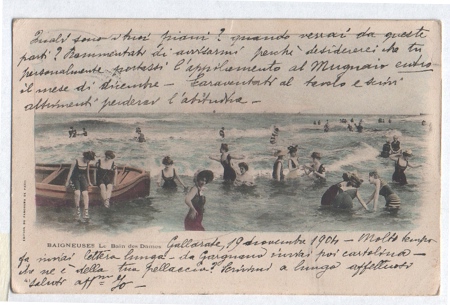 Quali sono i tuoi piani? quando verrai da queste
parti? Rammentati di avvisarmi perchè desidererei che tu
personalmente portassi l'appuntamento al Mugnaio entro
il mese di Dicembre — al tavolo e scrivi
altrimenti perderai l'abitudine —
BAIGNEUSES Le Bain des Dames
Gallarate, 19 novembre 1904 — Molto tempo
fa inviai lettera lunga — da Gargnano inviai poi cartolina —
che ne è della tua pellaccia? Scrivimi a lungo affettuosi
saluti aff.mo